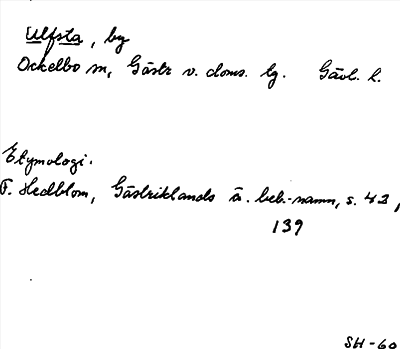 Ulfsta, by
Ockelbo sn, Gästr v. doms. lg. Gävl. l.
Etymologi.
F. Hedblom, Gästriklands ä. beb.-namn, s. 42,
139
SH-60